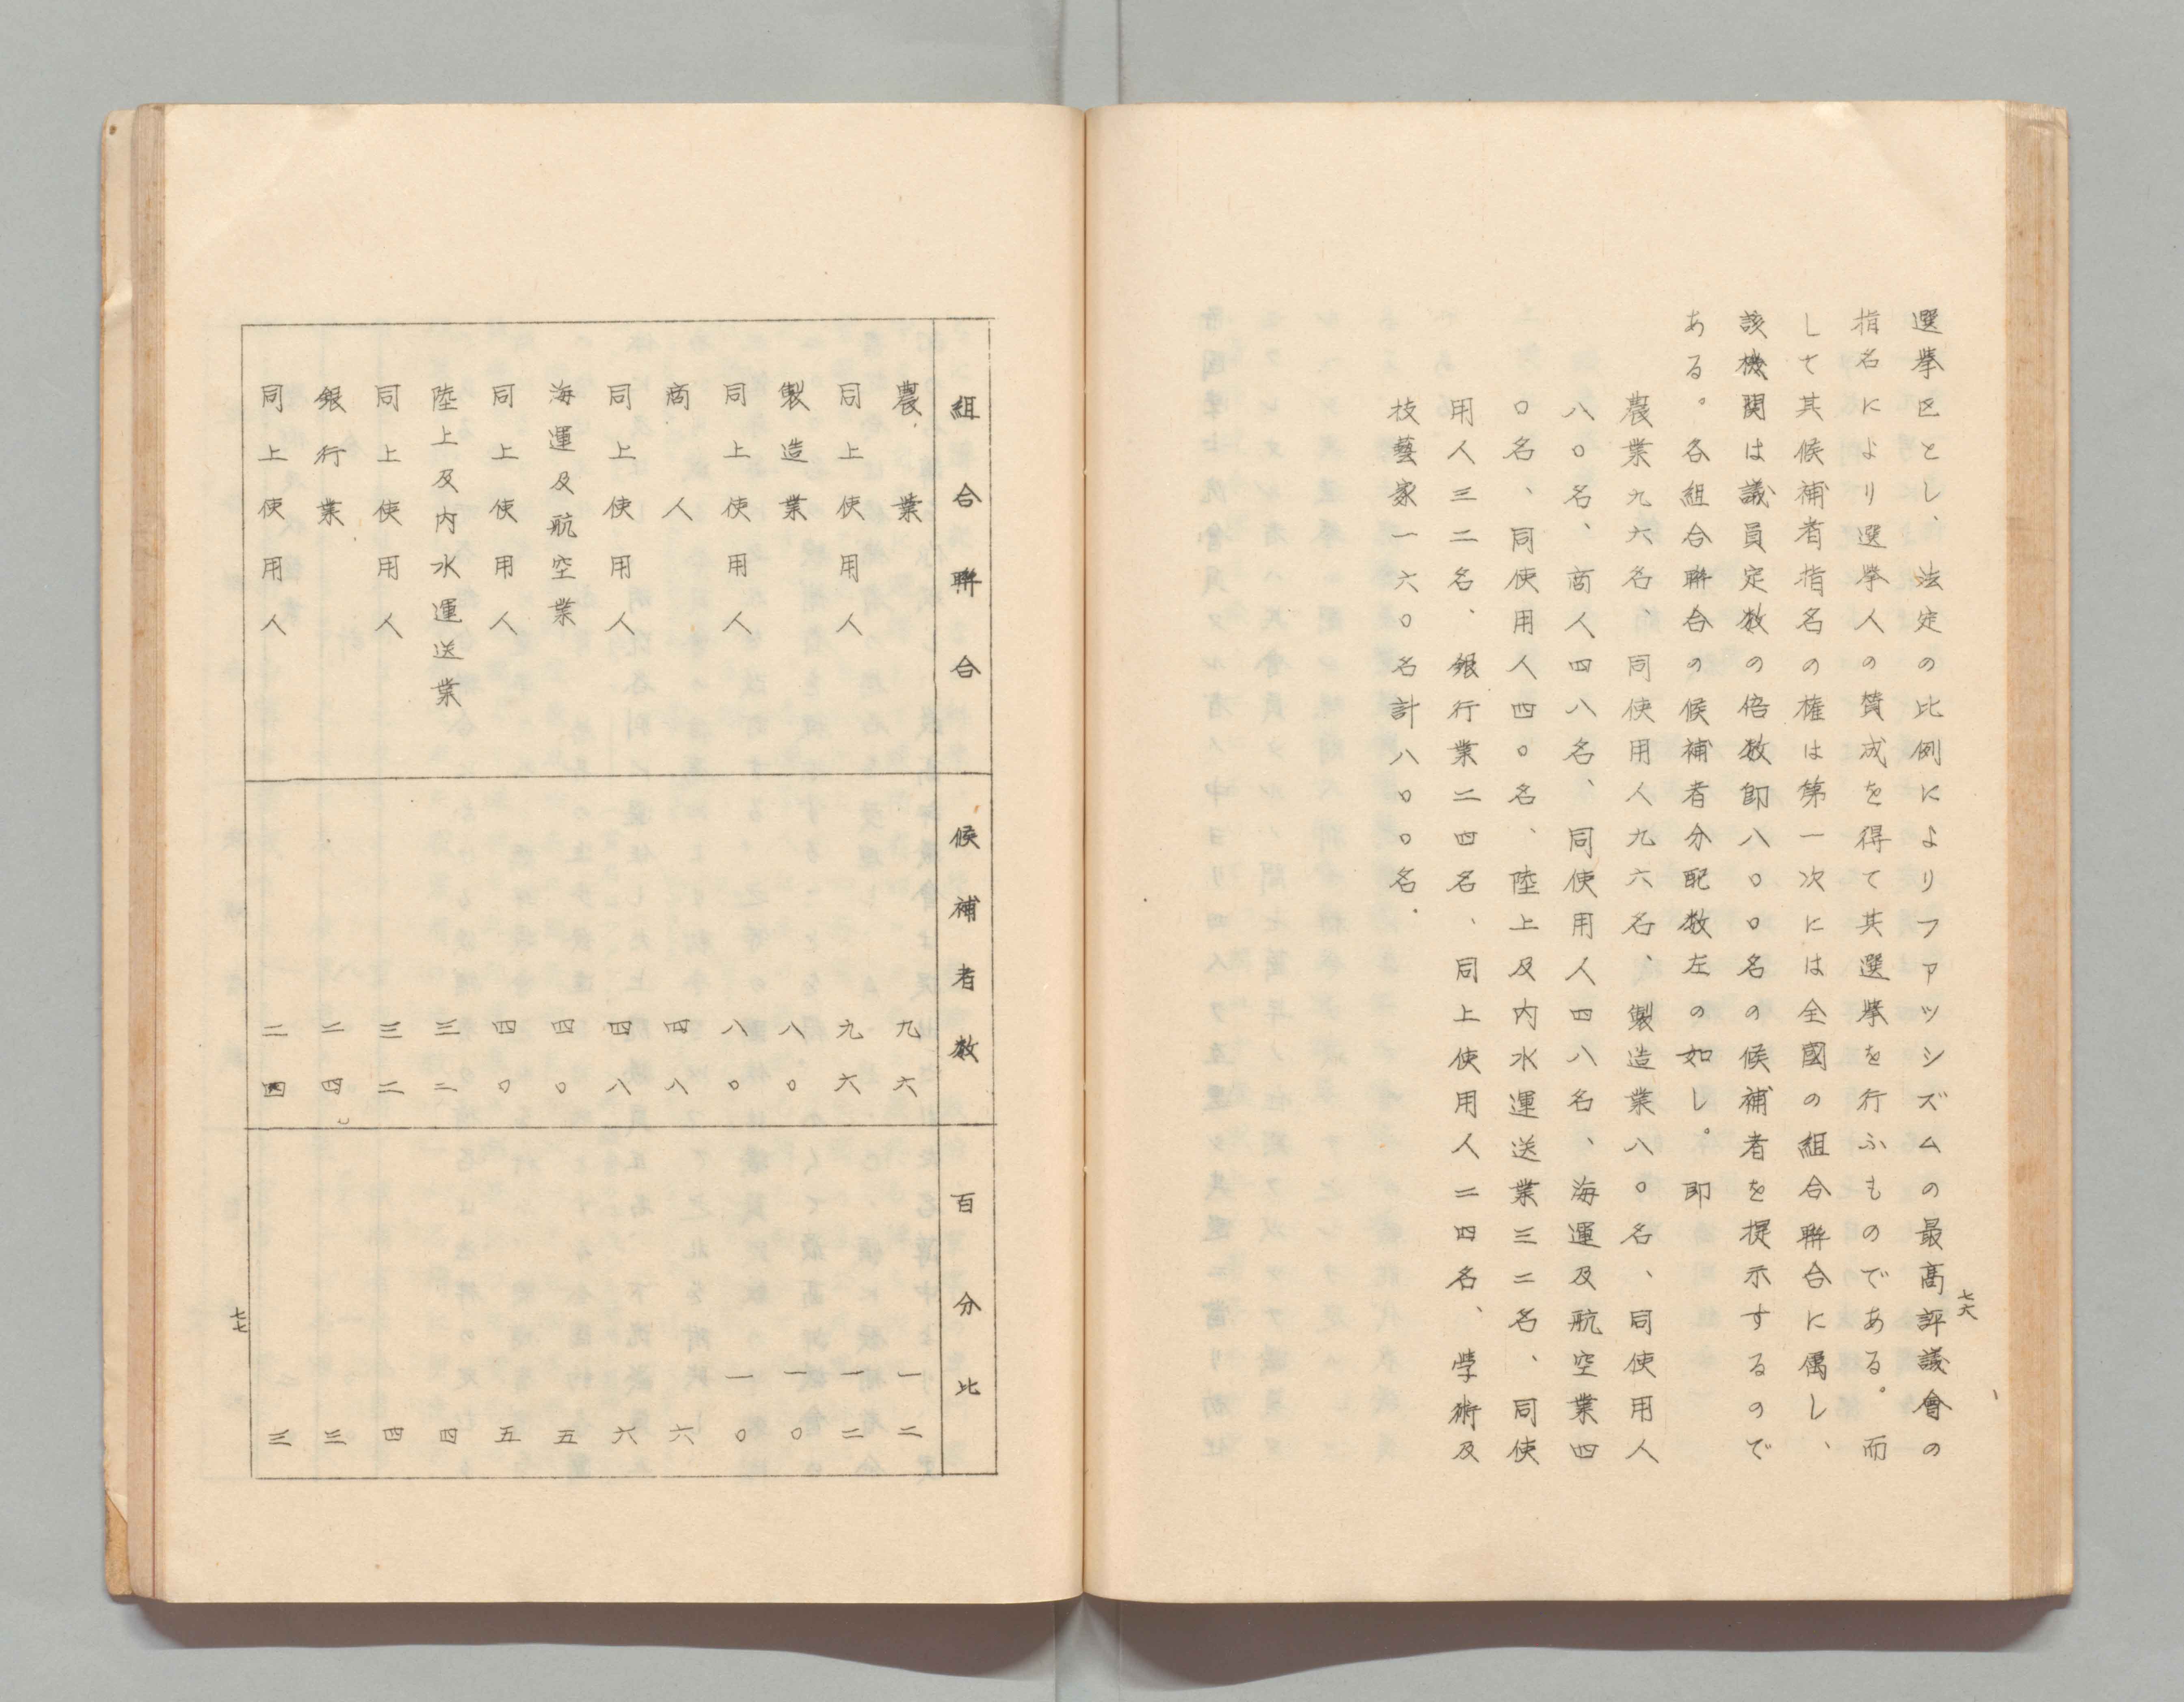 七六
選挙区とし、法定の比例によりファッシズムの最高評議會の
指名により選挙人の賛成を得て其選挙を行ふものである。而
して其候補者指名の権は第一次には全國の組合聯合に属し、
該機関は議員定数の倍数即八〇〇名の候補者を提示するので
ある。各組合聯合の候補者分配数左の如し。即
農業九六名、同使用人九六名、製造業八〇名、同使用人
八〇名、商人四八名、同使用人四八名、海運及航空業四
〇名、同使用人四〇名、陸上及内水運送業三二名、同使
用人三二名、銀行業二四名、同上使用人二四名、學術及
技藝家一六〇名計八〇〇名.
組合聯合 候補者数 百分比
農業 九六 一二
同上使用人 九六 一二
製造業 八〇 一〇
同上使用人 八〇 一〇
商人 四八 六
同上使用人 四八 六
海運及航空業 四〇 五
同上使用人 四〇 五
陸上及内水運送業 三二 四
同上使用人 三二 四
銀行業 二四 三
同上使用人 二四 三
七七